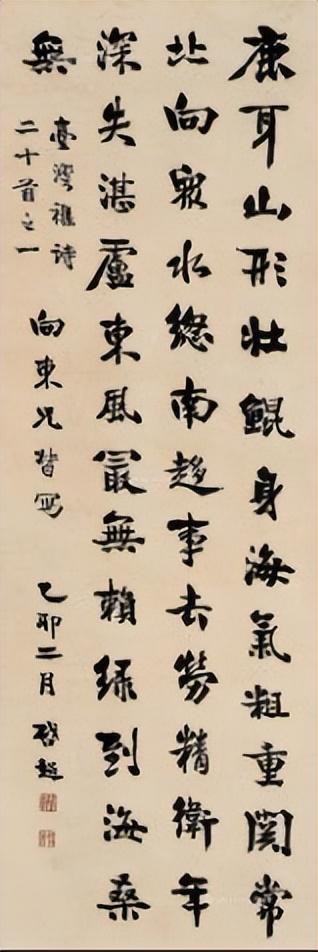 鹿耳山形壯鯤身海氣粗重關常
北向眾水總南趨事去勞精衛年
深失湛盧東風最無賴綠到海桑
無
臺灣雜詩
二十首之一
向東兄 寫 乙卯二月 啓超